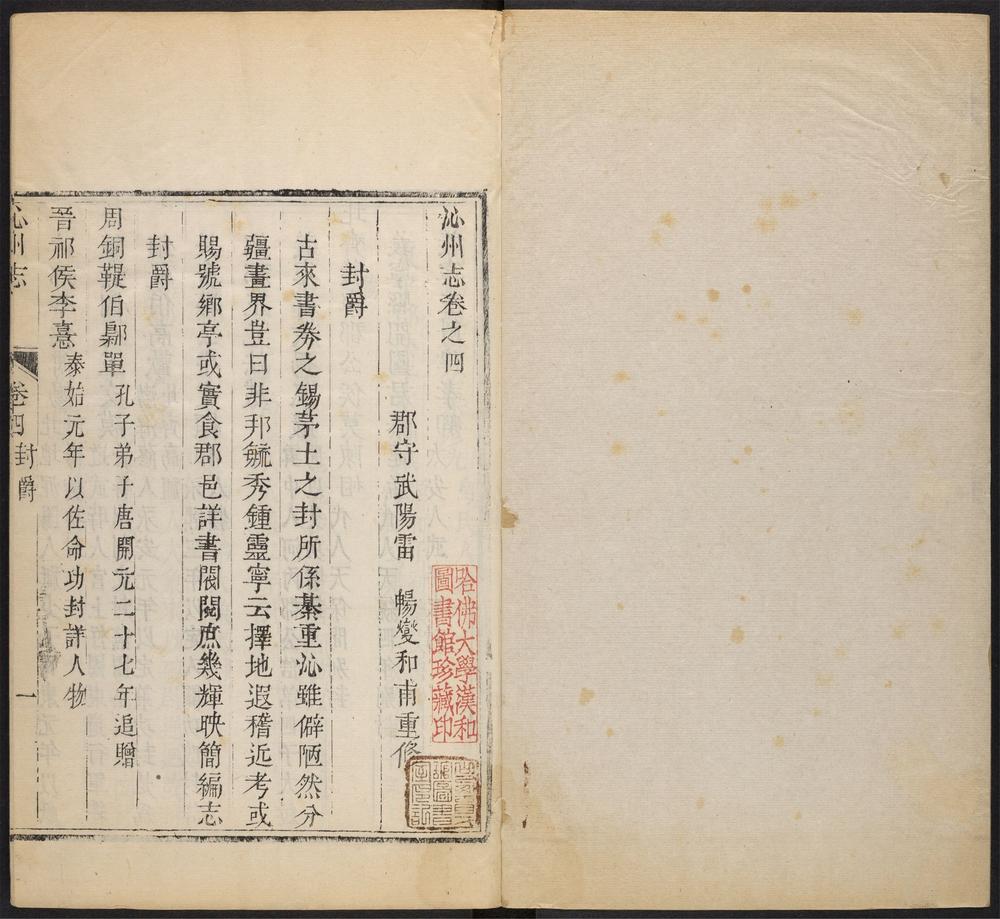 沁州志卷之四
郡守武陽雷　暢燮和甫重修
封爵
古來書券之錫茅土之封所係綦重沁雖僻陋然分
疆畫界豈曰非邦毓秀鍾靈寧云擇地遐稽近考或
賜號鄉亭或實食郡邑詳書閥閱庶幾輝映簡編志
封爵
周銅鞮伯鄡單孔子弟子唐開元二十七年追贈
晉祁侯李憙泰始元年以佐命功封詳人物
沁州志
卷四封爵
一
哈佛大學漢和
圖書館珍藏印